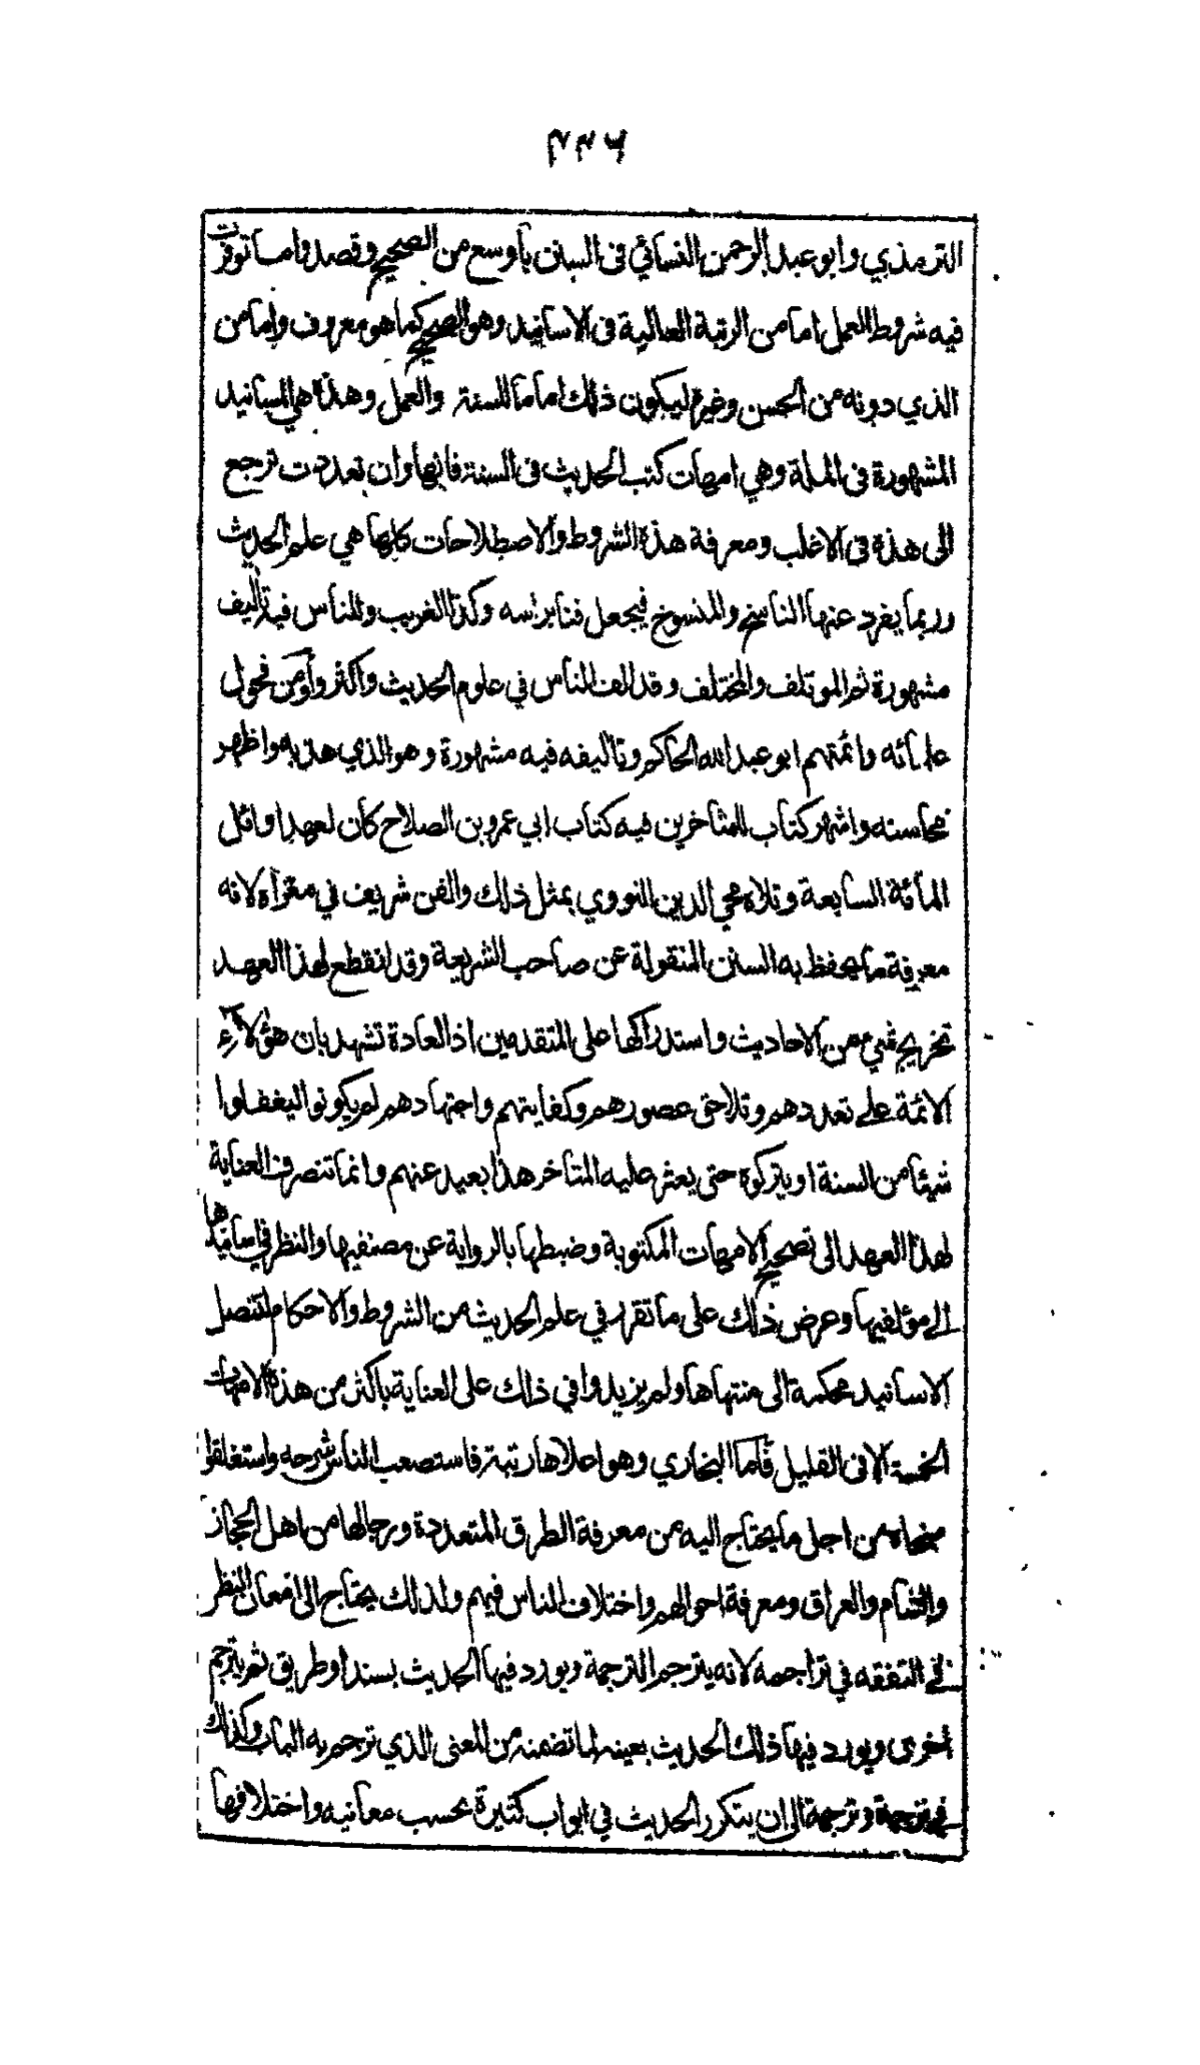 ٣٣٦
الترمذي وابو عبد الرحمن النسائي فى السنن بأوسع من الصحيح وقصدوا ما توفرت
فيه شروط العمل اما من الرتبة العالية فى الاسانيد وهو الصحيح كما هو معروف واما من
الذي دونه من الحسن وغيره ليكون ذلك اماما للسنة والعمل وهذه هي المسانيد
المشهورة فى الملة وهي امهات كتب الحديث فى السنة فانها وان تعددت ترجع
الى هذة فى الاغلب ومعرفة هذه الشروط والاصطلاحات كلها هي علم الحديث
وربما يفرد عنها الناسخ والمنسوخ فيجعل فنا براسه وكذا الغريب وللناس فيه تأليف
مشهورة ثم الموتلف والمختلف وقد الف الناس في علوم الحديث واكثروا ومن فحول
علمائه وائمتهم ابو عبد الله الحاكم وتاليفه فيه مشهورة وهو الذي هذبه واظهر
محاسنه واشهر كتاب للمتاخرين فيه كتاب ابي عمرو بن الصلاح كان لعهد اوائل
المأئة السابعة وتلاه محي الدين النووي بمثل ذلك والفن شريف في مغزاه لانه
معرفة ما يحفظ به السنن المنقولة عن صاحب الشريعة وقد انقطع لهذا العهد
تخريج شيء من الاحاديث واستدراكها على المتقدمين اذ العادة تشهد بان هؤلاء
الائمة على تعددهم وتلاحق عصورهم وكفايتهم واجتهادهم لم يكونوا ليغفلوا
شيئا من السنة او يتركوه حتى يعثر عليه المتاخر هذا بعيد عنهم وانما تنصرف العناية
لهذا العهد الى تصحيح الامهات المكتوبة وضبطها بالرواية عن مصنفيها والنظر في اسانيدها
الى مؤلفيها وعرض ذلك على ما تقرر في علم الحديث من الشروط والاحكام لتتصل
الاسانيد محكمة الى منتهاها ولم يزيدوا في ذلك على العناية باكثر من هذه الامهات
الخمسة الا فى القليل فاما البخاري وهو اعلاها رتبة فاستصعب الناس شرحه واستغلقوا
منحاه من اجل ما يحتاج اليه من معرفة الطرق المتعددة ورجالها من اهل الحجاز
والشام والعراق ومعرفة احوالهم واختلاف الناس فيهم ولذلك يحتاج الى امعان النظر
في التفقه في تراجمه لانه يترجم الترجمة ويورد فيها الحديث بسند او طريق ثم يترجم
اخرى ويورد فيها ذلك الحديث بعينه لما تضمنه من المعنى الذي ترجم به الباب وكذلك
في ترجمة وترجمة الى ان يتكرر الحديث في ابواب كثيرة بحسب معانيه واختلافها